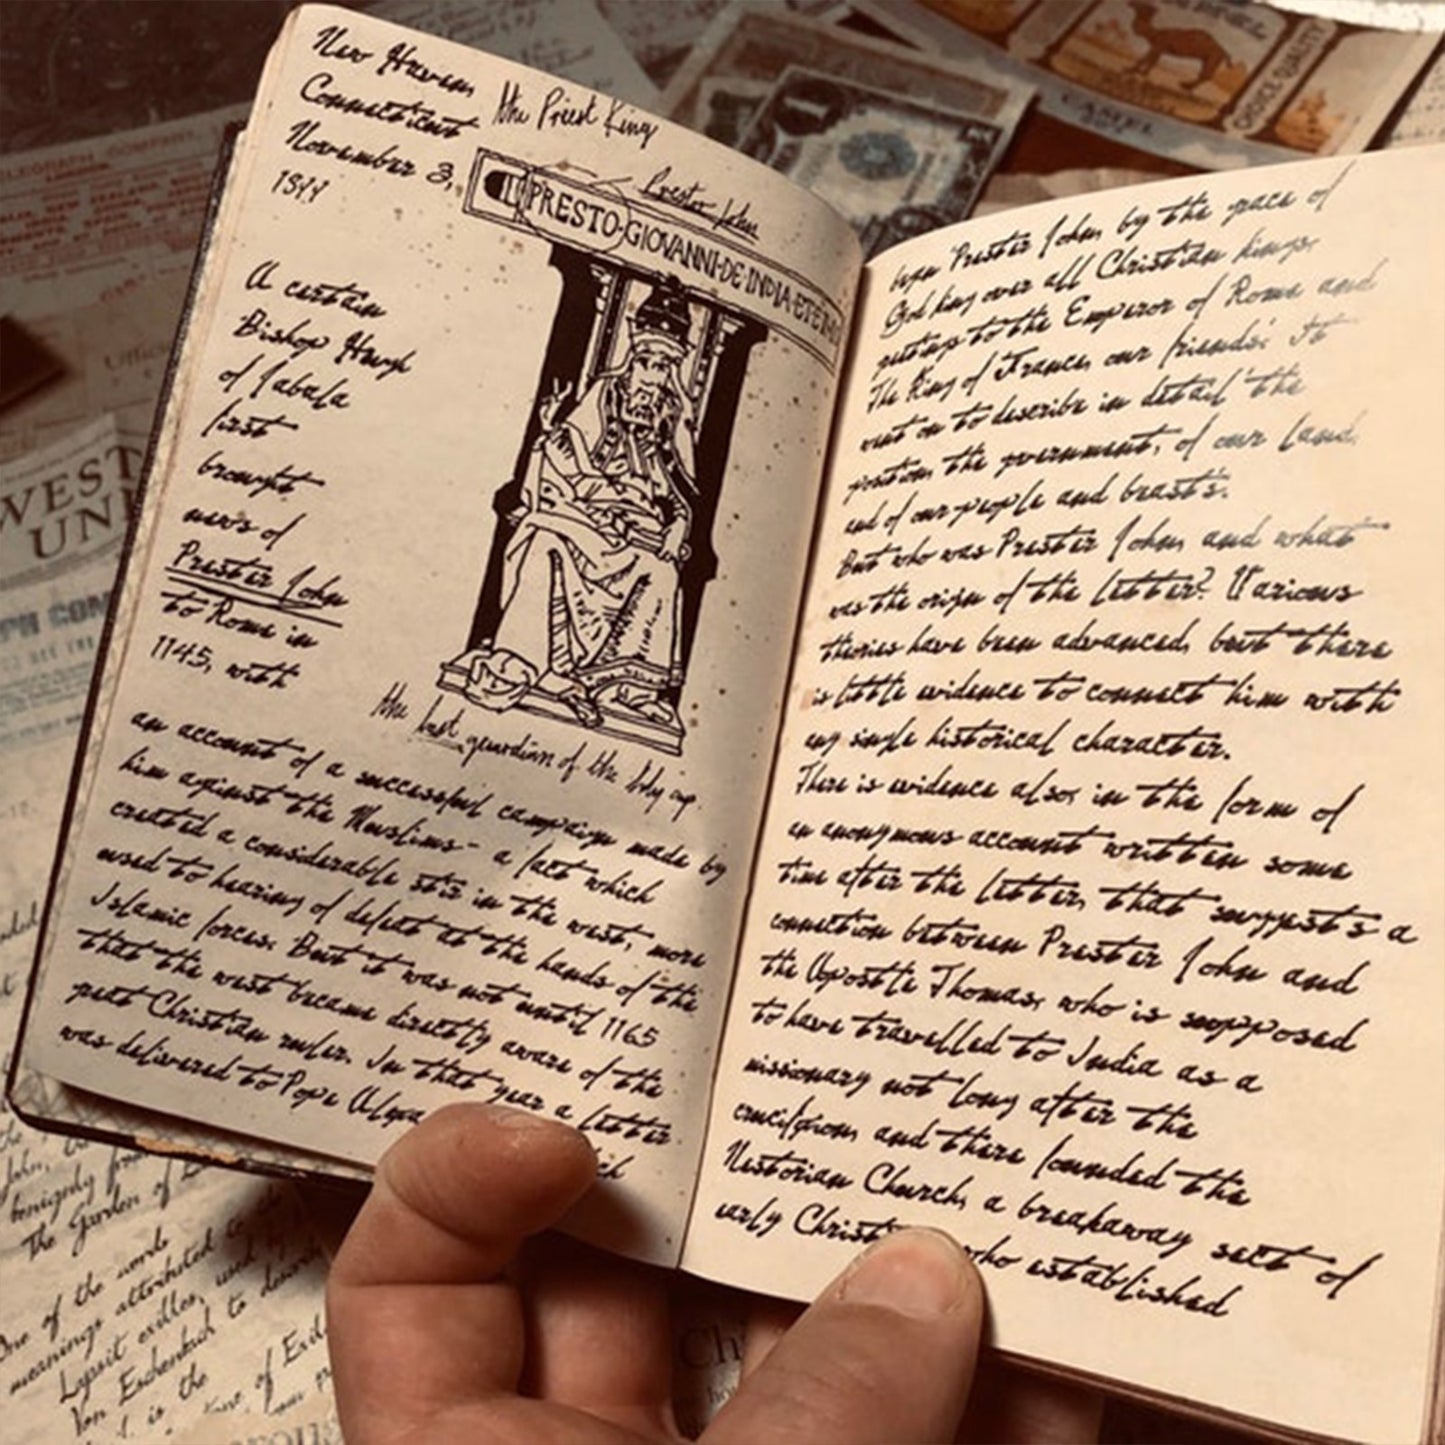 New Haven,
Connecticut
November 3,
the Priest King
Prester John
IL PRESTO·GIOVANNI·DE·INDIA·ET
A certain
Bishop Hough
of Jabala
first
brought
news of
Prester John
to Rome in
1145, with
the last guardian of the holy cup.
an account of a successful campaign made by
him against the Muslims - a fact which
created a considerable stir in the west, more
used to hearing of defeat at the hands of the
Islamic forces. But it was not until 1165
that the west became directly aware of the
great Christian ruler. In that year a letter
was delivered to Pope
began 'Prester John, by the grace of
God king over all Christian kings,
greetings to the Emperor of Rome and
The King of France, our friends.' It
went on to describe in detail 'the
position, the government, of our land,
and of our people and beasts.'
But who was Prester John, and what
was the origin of the letter? Various
theories have been advanced, but there
is little evidence to connect him with
any single historical character.
There is evidence also, in the form of
an anonymous account written some
time after the letter, that suggests a
connection between Prester John and
the Apostle Thomas, who is supposed
to have travelled to India as a
missionary not long after the
crucifixion, and there founded the
Nestorian Church, a breakaway sect of
early who established
WEST
UN
CAMEL
CHOICE QUALITY
TELEGRAPH COMPANY
benignly
The Garden of
One of the words
meanings attributed to the
Lapsit exillis, used
Von Eschenbach to
is the of Exile